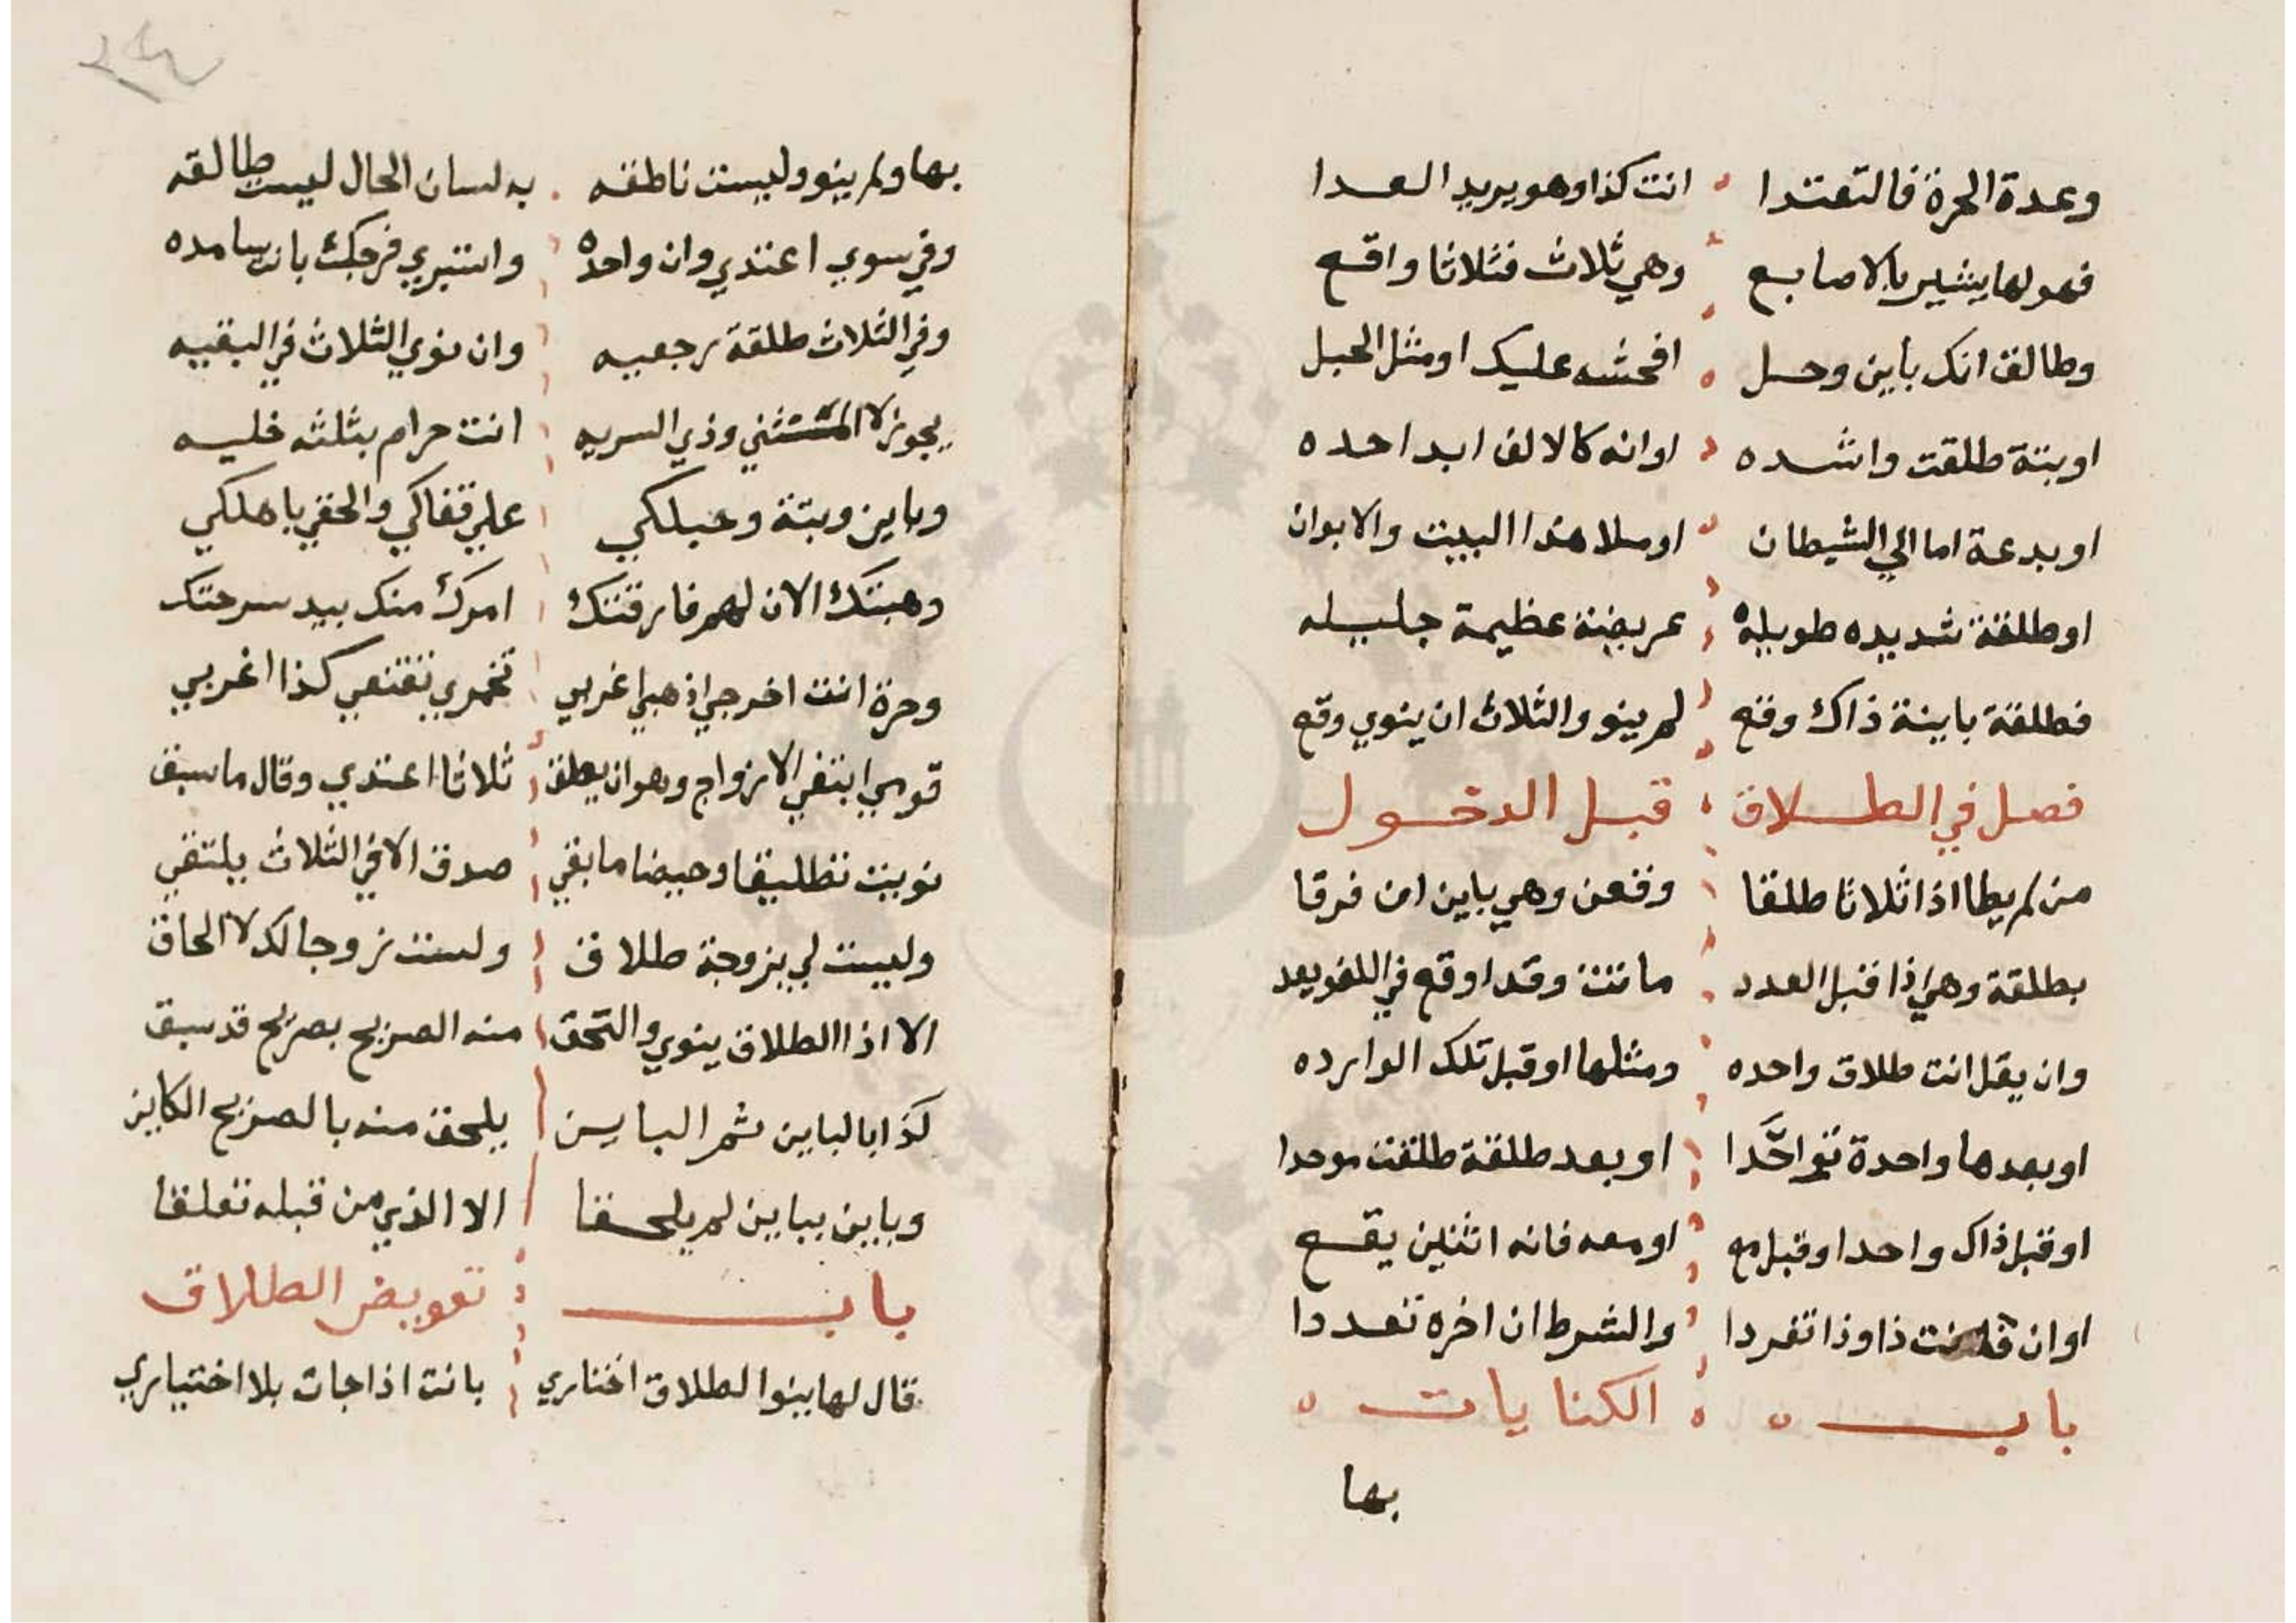 وعدة الحرة فالتعتدا انت كذا وهو يريد العدا
فهو لها يشير بالاصابع وهي ثلاث فثلاثا واقع
وطالق انك باين وحل افحشه عليك او مثل الجبل
او بتة طلقت واشده او انه كالالف ابدا حده
او بدعة اما الي الشيطان او ملا هذا البيت والابوان
او طلقة شديده طويله عريضة عظيمة جليله
فطلقة باينة ذاك وقع لم ينو والثلاث ان ينوي وقع
فصل في الطلاق قبل الدخول
من لم يطا اذا ثلاثا طلقا وقعن وهي باين ان فرقا
بطلقة وهي اذا قبل العدد ماتت وقد اوقع في اللغو يعد
وان يقل انت طلاق واحده ومثلها او قبل تلك الوارده
او بعدها واحدة توحدا او بعد طلقة طلقت موحدا
او قبل ذاك واحدا وقبل مع او معه فانه اثنين يقع
او ان ذا وذا تفردا والشرط ان اخره تعددا
باب الكنايات
بها
بها ولم ينو وليست ناطقه به لسان الحال ليست طالقه
وفي سوي اعتدي وان واحده واستبري فرجك بانت سامده
وفي الثلاث طلقة رجعيه وان نوي الثلاث في البقيه
يجوز لا المستثني وذي السريه انت حرام بثلثه خليه
وباين وبتة وحبلكي علي قفاكي والحقي باهلكي
وهبتك الان لهم فارقتك امرك منك بيد سرحتك
وحرة انت اخرجي اذهبي اغربي تخمري تقنعي كذا اغربي
قومي ابتغي الازواج وهو ان يطلق ثلاثا اعتدي وقال ما سبق
نويت تطليقا وحيضا ما بقي صدق الا في الثلاث يلتقي
وليست لي بزوجة طلاق ولست زوجا لك لا الحاق
الا اذا الطلاق ينوي والتحق منه الصريح بصريح قد سبق
كذا بالباين ثم الباين يلحق منه بالصريح الكاين
وباين بباين لم يلحقا الا الذي من قبله تعلقا
باب تفويض الطلاق
قال لها ينوا الطلاق اختاري بانت اذا جات بلا اختياري